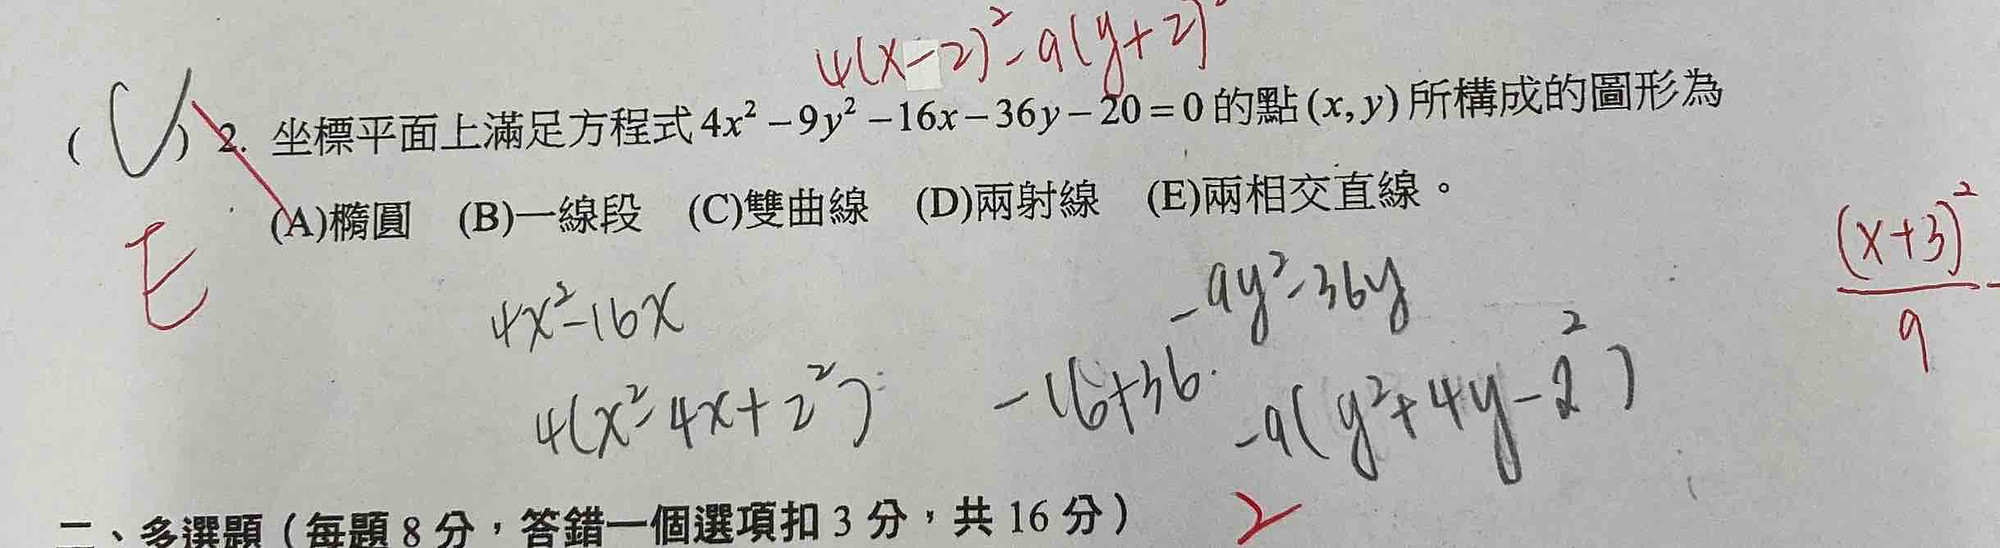 4(x-2)²-9(y+2)²
( C ) 2. 坐標平面上滿足方程式 4x² − 9y² − 16x − 36y − 20 = 0 的點 (x, y) 所構成的圖形為
(A)橢圓 (B)一線段 (C)雙曲線 (D)兩射線 (E)兩相交直線。
E
(x+3)²
9
4x²-16x
-9y²-36y
4(x²-4x+2²)
-16+36
-9(y²+4y-2²)
二、多選題（每題 8 分，答錯一個選項扣 3 分，共 16 分）